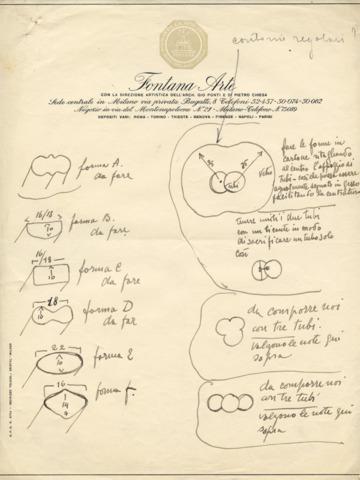 contorni regolari ?
Fontana Arte
CON LA DIREZIONE ARTISTICA DELL'ARCH. GIO PONTI E DI PIETRO CHIESA
Sede centrale in Milano via privata Bugatti, 8 Telefoni 32-457 - 30-074 - 30-062
Negozio in via del Montenapoleone N.º 21 - Milano - Telefono N.º 75089
DEPOSITI VARI: ROMA - TORINO - TRIESTE - GENOVA - FIRENZE - NAPOLI - PARIGI
forma A.
da fare
16/18
10
forma B.
da fare
16/18
10
forma C
da fare
18
10
forma D
da far
22
10
forma E
16
14
forma f.
tubi
vetro
fare le forme in
cartone ritagliando
al centro l'appoggio di
tubi - così da poter essere
facilitando la centratura
tenere uniti i due tubi
con un tiente in modo
di sacrificare un tubo solo
così
da comporre noi
con tre tubi.
valgono le note qui
sopra
da comporre noi
con tre tubi
valgono le note qui
sopra